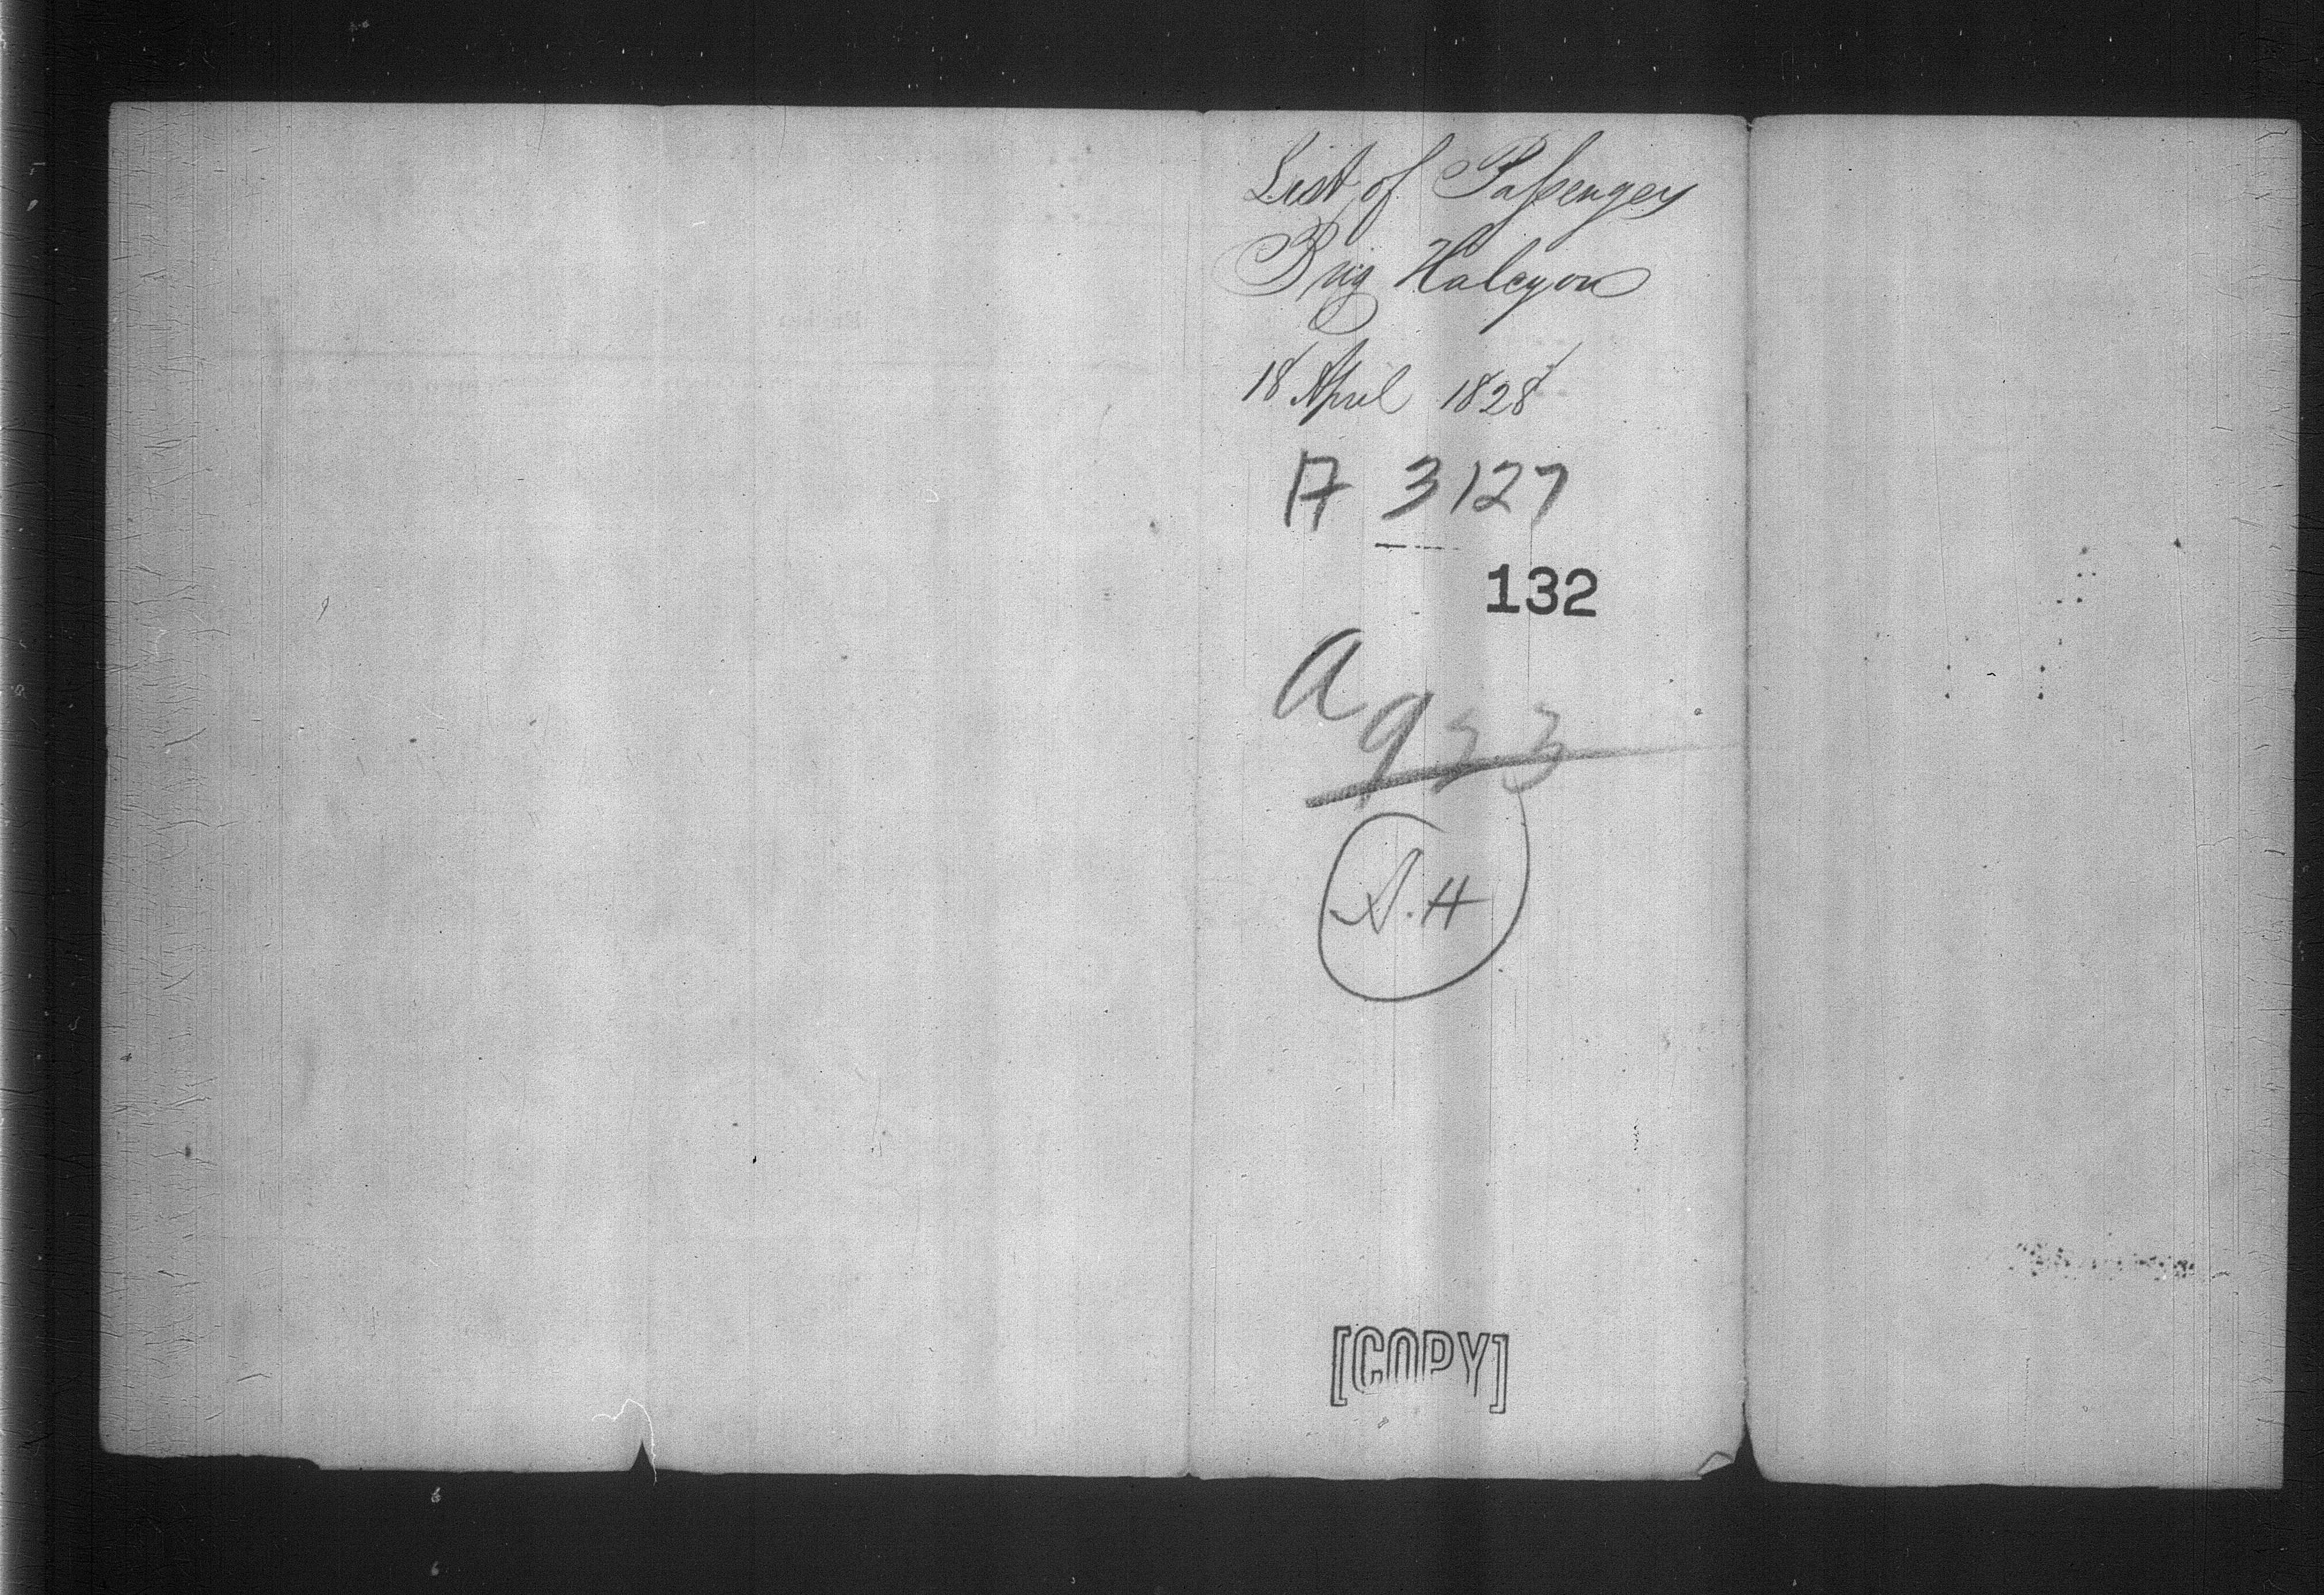 List of Passengers
Brig Halcyon
18 April 1828
A 3127
132
a
933
A.H
[COPY]